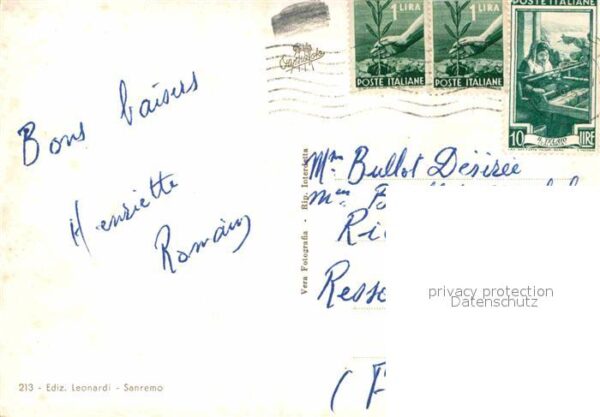 1 LIRA
1 LIRA
POSTE ITALIANE
POSTE ITALIANE
POSTE ITALIANE
IL TELAIO
10 LIRE
Bons baisers
Henriette
Romain
Vera Fotografia - Rip. Interdetta
Mr Bullot Désirée
Mme
Ri
Resso
(F
privacy protection
Datenschutz
213 - Ediz. Leonardi - Sanremo